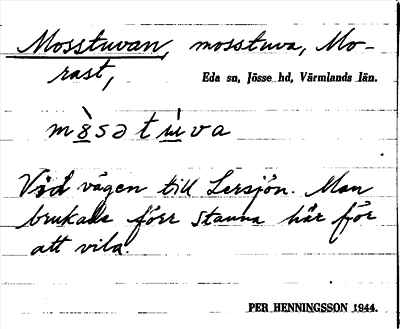 Mosstuvan, mosstuva, Mo-
rast,
Eda sn, Jösse hd, Värmlands län.
m ò̱ s ə t ù̱ v a
Vid vägen till Lersjön. Man
brukade förr stanna här för
att vila.
PER HENNINGSSON 1944.